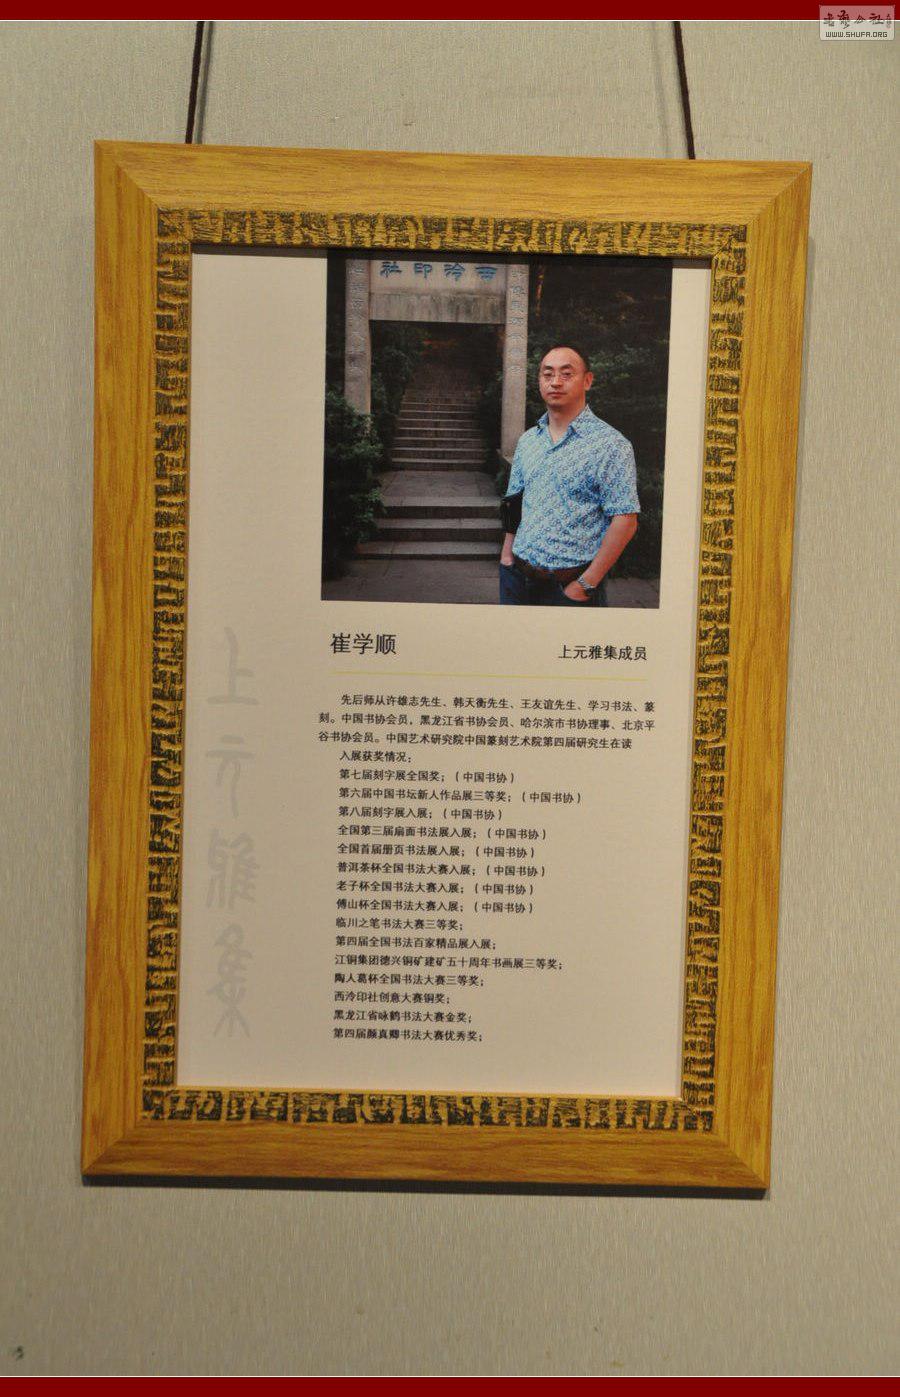 WWW.SHUFA.ORG
社印泠西
崔学顺
上元雅集成员
先后师从许雄志先生、韩天衡先生、王友谊先生、学习书法、篆
刻。中国书协会员，黑龙江省书协会员、哈尔滨市书协理事、北京平
谷书协会员。中国艺术研究院中国篆刻艺术院第四届研究生在读
入展获奖情况；
第七届刻字展全国奖；（中国书协）
第六届中国书坛新人作品展三等奖；（中国书协）
第八届刻字展入展；（中国书协）
全国第三届扇面书法展入展；（中国书协）
全国首届册页书法展入展；（中国书协）
普洱茶杯全国书法大赛入展；（中国书协）
老子杯全国书法大赛入展；（中国书协）
傅山杯全国书法大赛入展；（中国书协）
临川之笔书法大赛三等奖；
第四届全国书法百家精品展入展；
江铜集团德兴铜矿建矿五十周年书画展三等奖；
陶人葛杯全国书法大赛三等奖；
西泠印社创意大赛铜奖；
黑龙江省咏鹤书法大赛金奖；
第四届颜真卿书法大赛优秀奖；
上元雅集